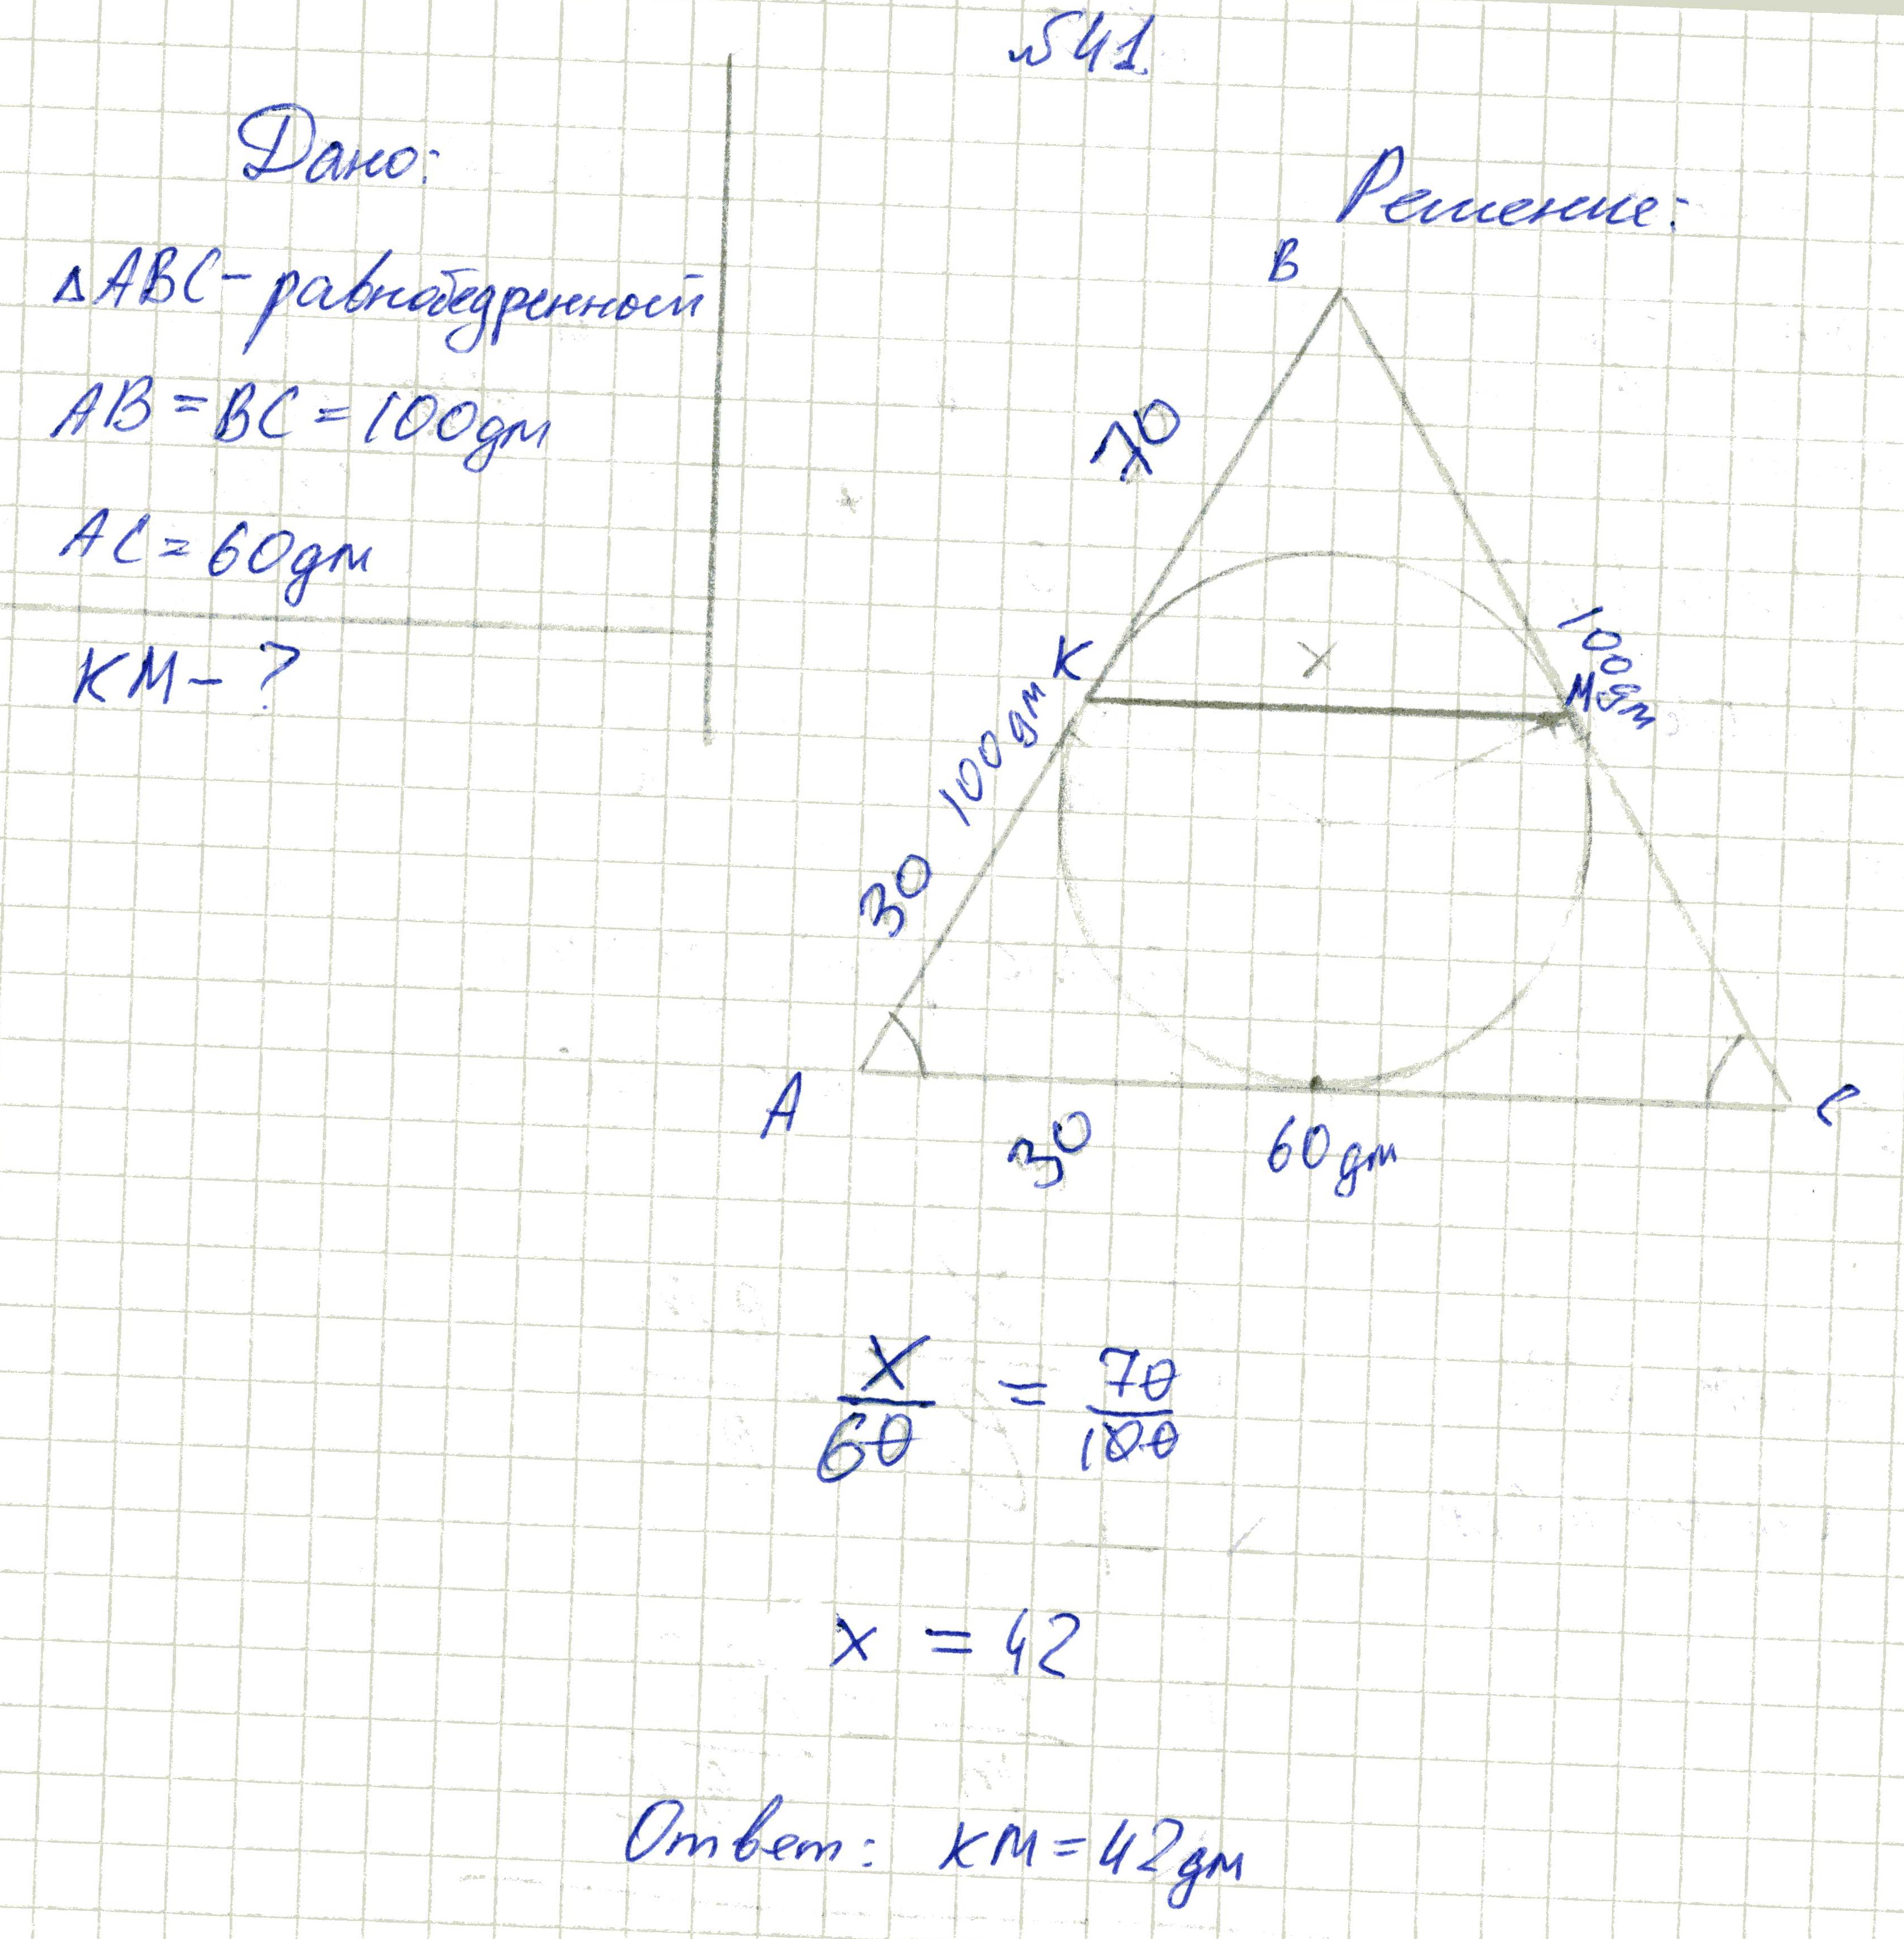 №41.
Дано:
△ABC - равнобедренный
AB = BC = 100дм
AC = 60дм
KM - ?
Решение:
B
70
K
x
100дм
M
100дм
30
A
C
30
60дм
x/60 = 70/100
x = 42
Ответ: KM = 42дм